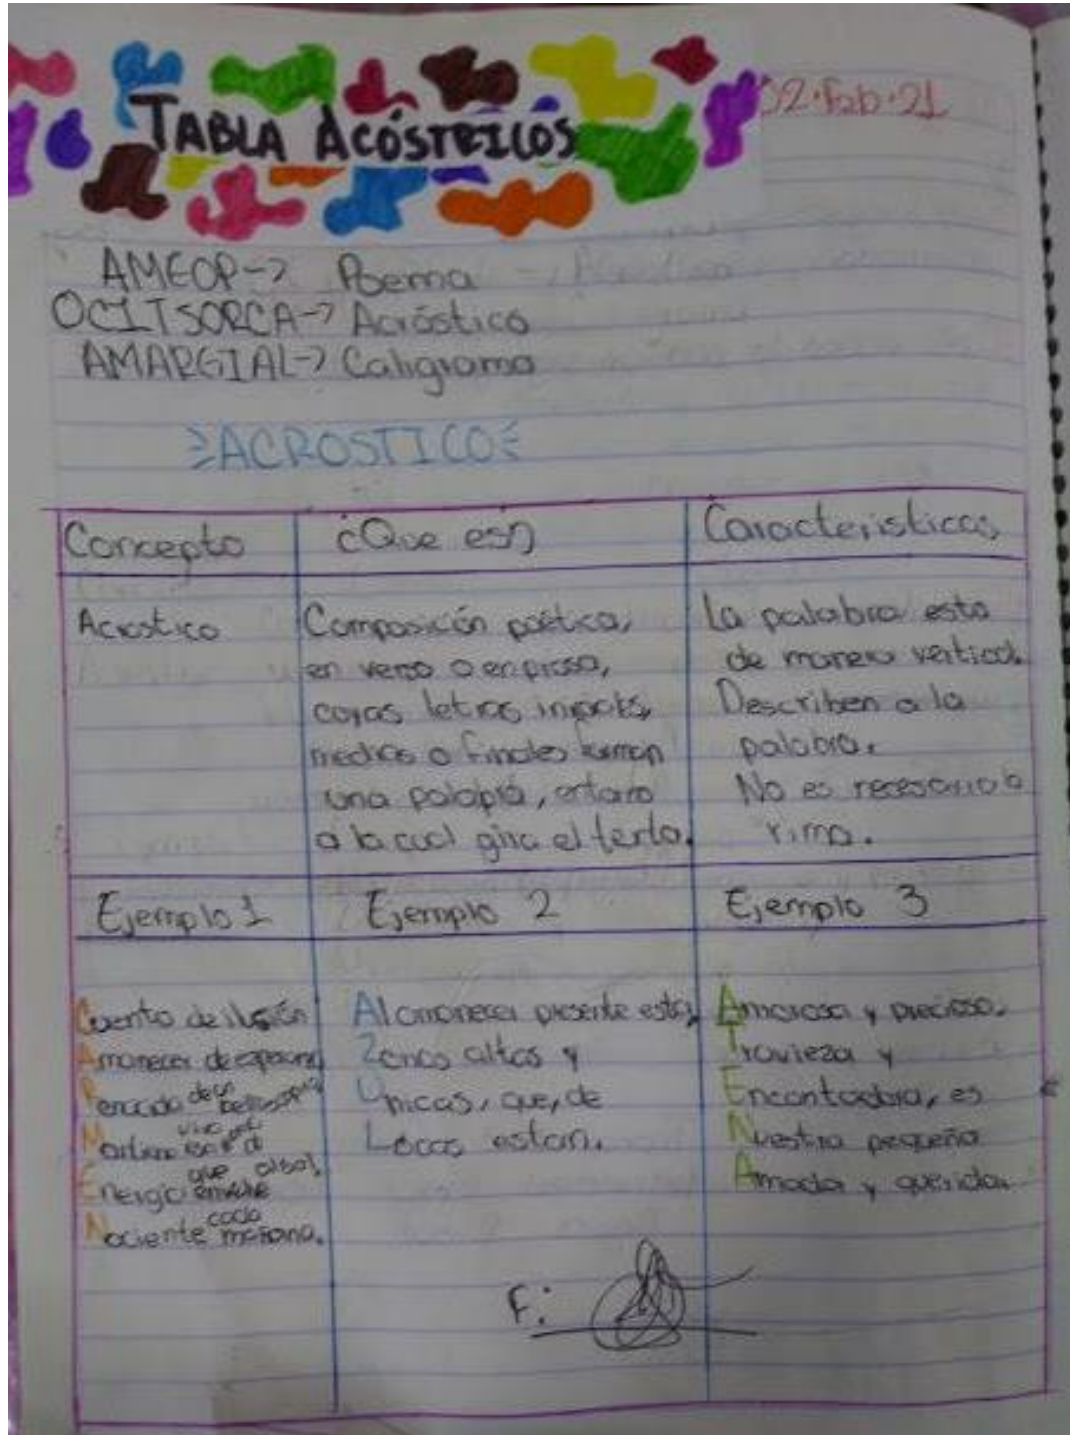 TABLA ACÓSTRICOS
02·Feb·21
AMEOP-> Poema
OCITSORCA-> Acróstico
AMARGIAL-> Caligrama
ACROSTICO
Concepto
¿Que es?
Caracteristicas
Acrostico
Composición poética,
en verso o en prosa,
cuyas letras
medias o finales forman
una
a la cual gira el texto.
La palabra esta
de manera vertical.
Describen a la
palabra.
No es necesario la
rima.
Ejemplo 1
Ejemplo 2
Ejemplo 3
Cuento de ilusión
Amanecer de
Renacida de
que al sol,
Energia
Naciente cada mañana.
Al amanecer presente esta,
Zonas altas y
Unicas, que, de
Locas estan.
Amorosa y preciosa.
Travieza y
Encantadora, es
Nuestra pequeña
Amada y querida.
F: